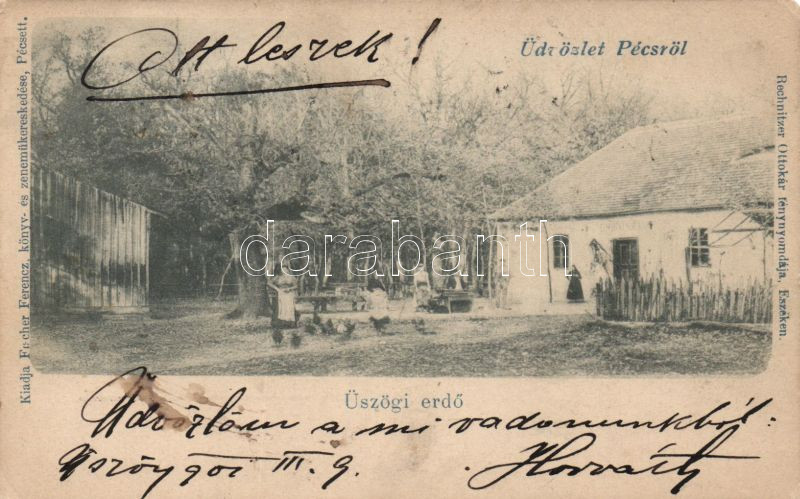 Ott leszek!
Üdvözlet Pécsről
Kiadja Fischer Ferencz, könyv- és zeneműkereskedése, Pécsett.
Rechnitzer Ottokár fénynyomdája, Eszéken.
darabanth
Üszögi erdő
Üdvözlöm a mi vadonunkból:
III. 9. Horváth